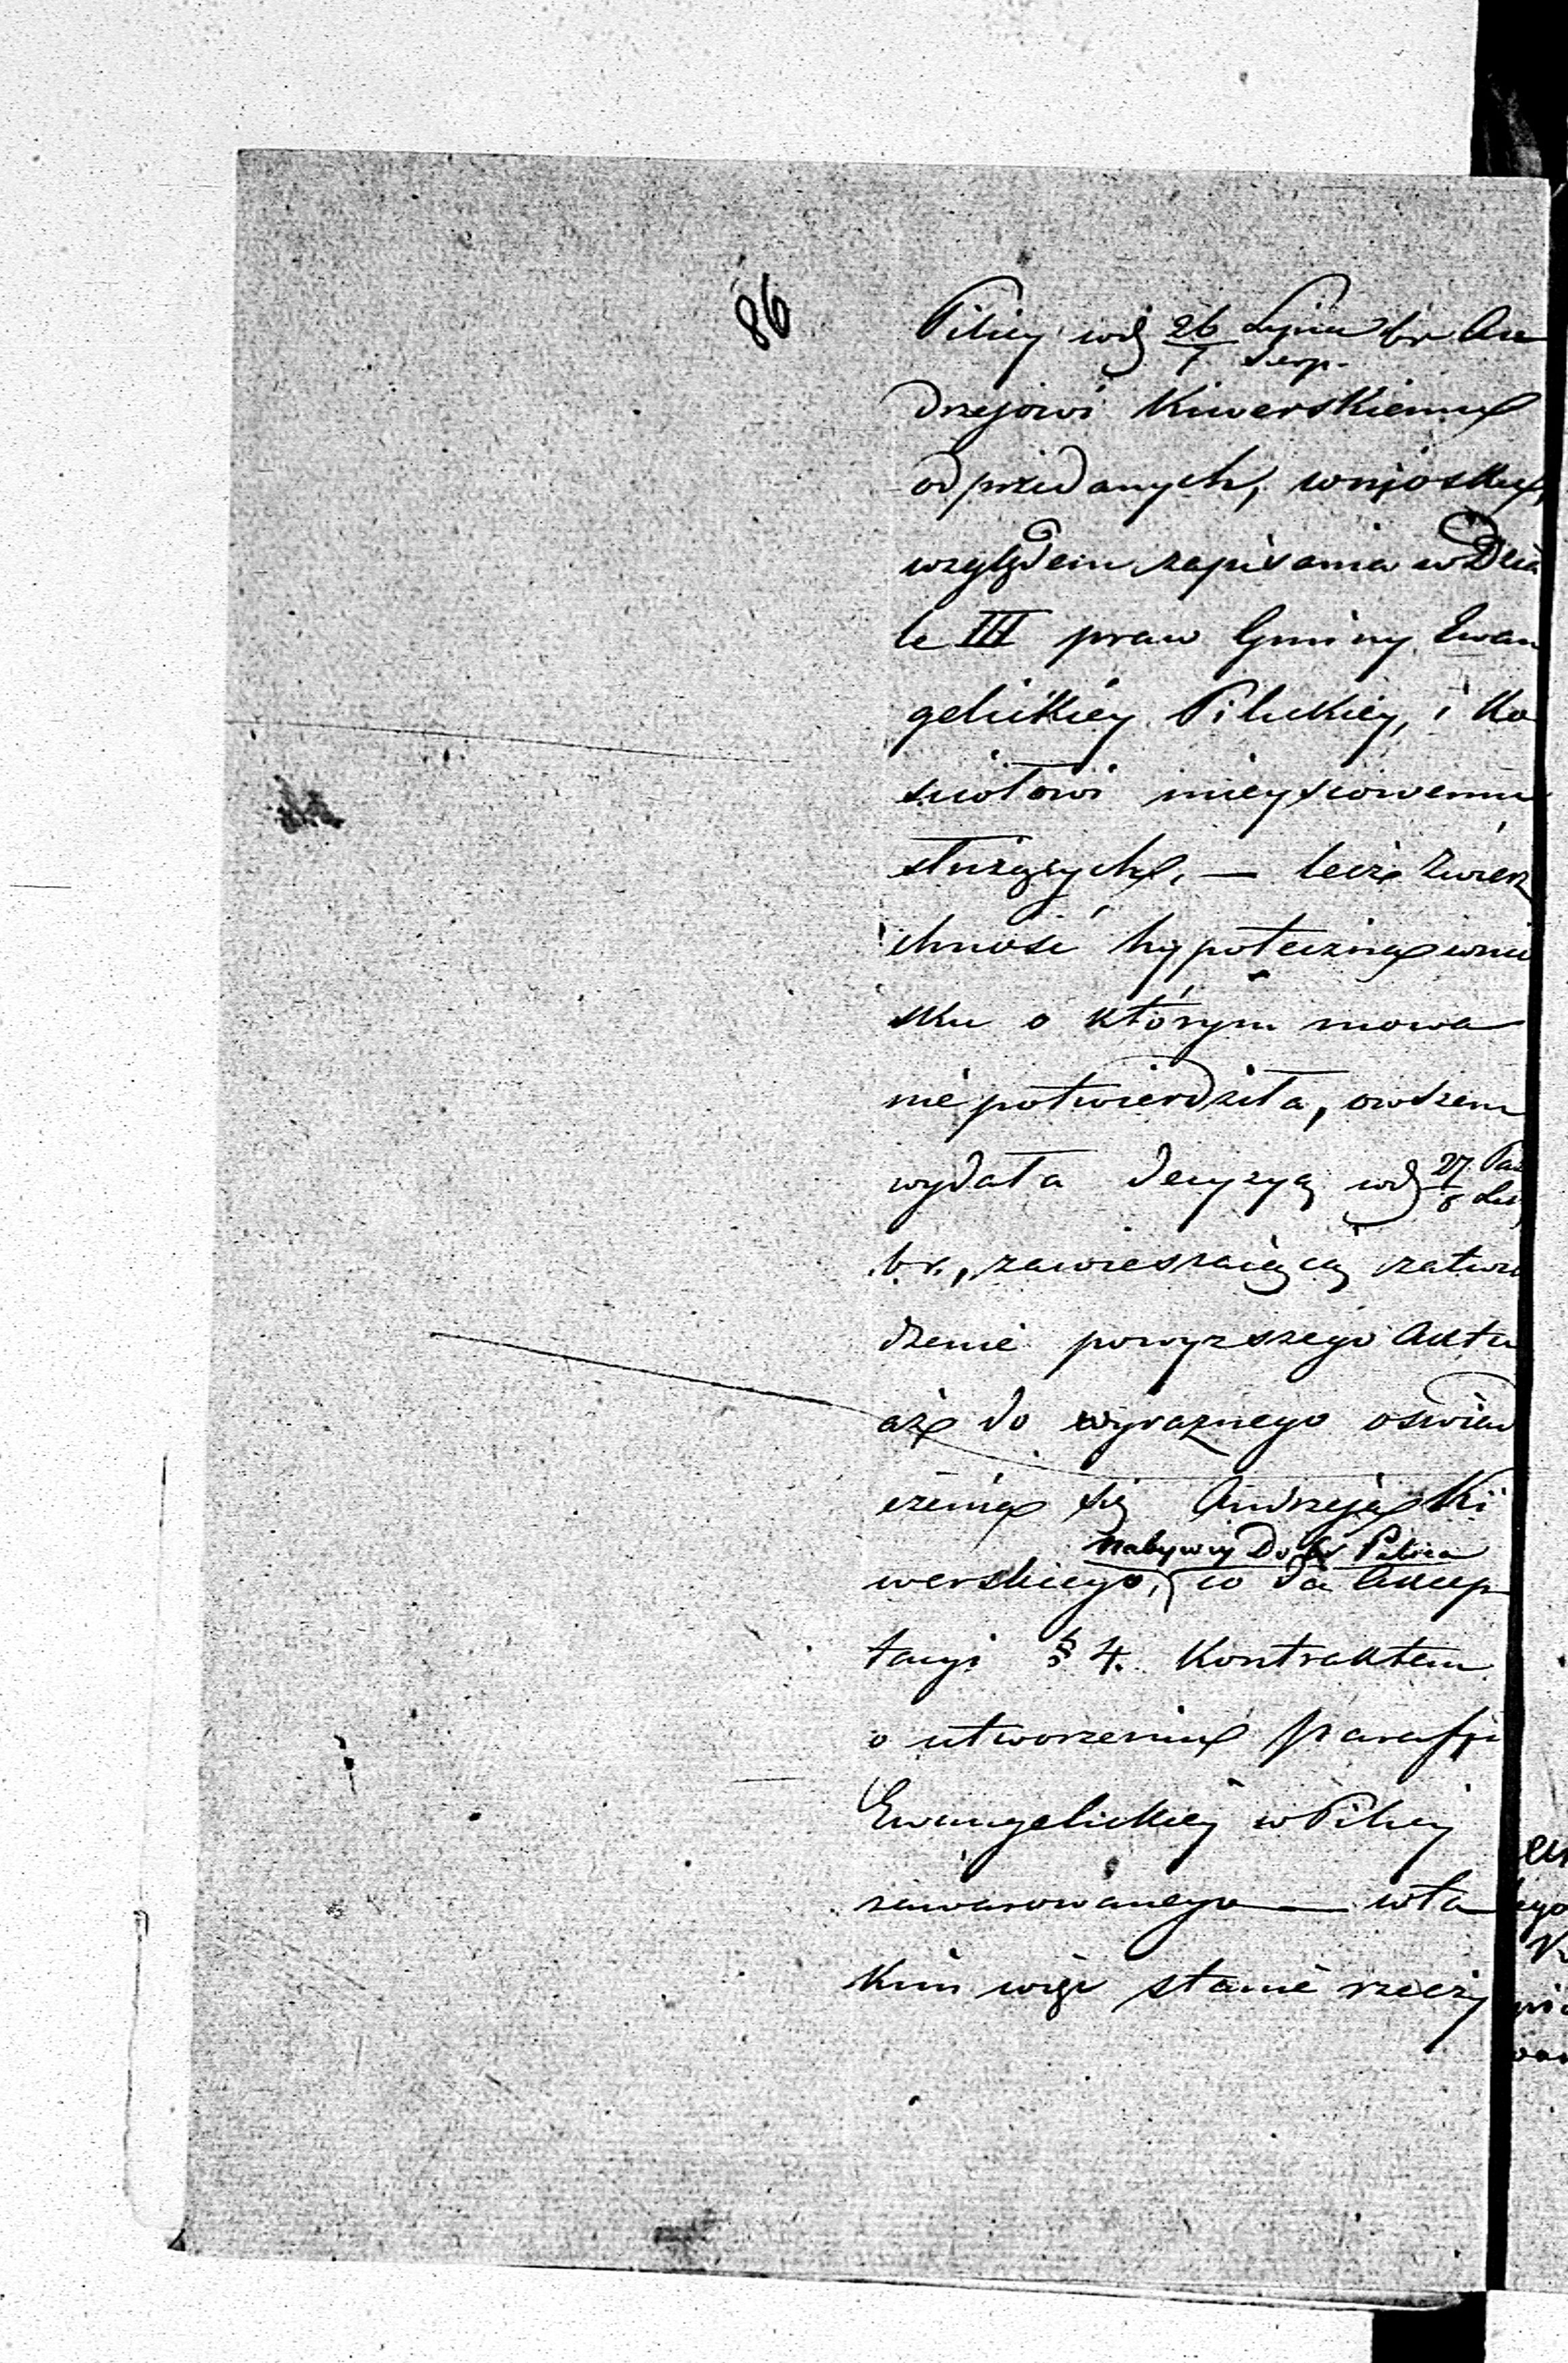 86
Pilicy wd 26/7 Lipca/Sierp. br An
drzejowi Kiwerskiemu
odprzedanych, wniosku,
względem zapisania w Dzia
le III praw Gminy Ewan
gelickiey Pilickiey, i Ko
sciołowi mieyscowemu
służących, — lecz Zwierz
chność hypoteczna wnio
sku o którym mowa
nie potwierdziła, owszem
wydała decyzyą wd 27/8 Paz/List
br., zawieszaiącą zatwier
dzenie powyzszego Aktu
aż do wyraznego oswiad
czenia się Andrzeja Ki
Nabywcy Dobr Pilica
werskiego, co do Akcep
tacyi § 4. Kontraktem
o utworzeniu parafji
Ewangelickiej w Pilicy
zawarowanego — w ta
kim więc stanie rzeczy